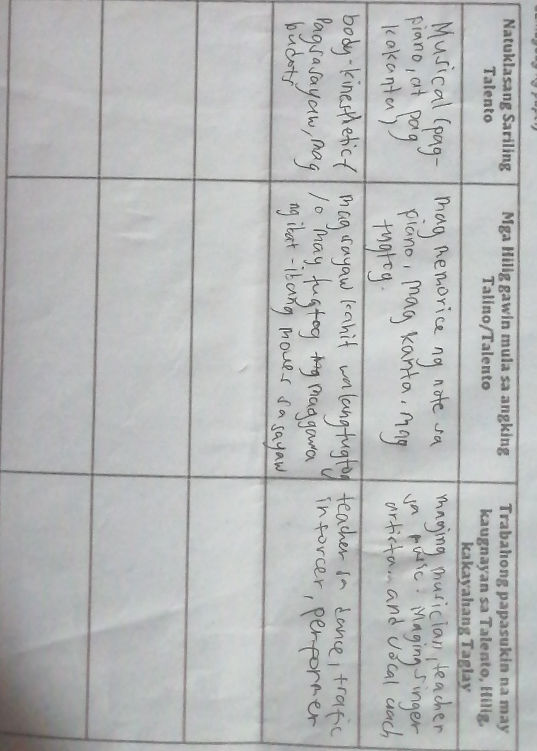 Natuklasang Sariling
Talento
Mga Hilig gawin mula sa angking
Talino/Talento
Trabahong papasukin na may
kaugnayan sa Talento, Hilig,
kakayahang Taglay
Musical (pag-
piano, at pag
kakanta)
mag memorice ng note sa
piano, mag kanta, mag
tugtog.
maging musician, teacher
sa music. Maging singer
artista, and vocal coach
body-kinesthetic (
Pagsasayaw, mag
mag sayaw kahit walang tugtog
/o may tugtog maggawa
ng ibat-ibang moves sa sayaw
teacher sa dance, trafic
inforcer, performer